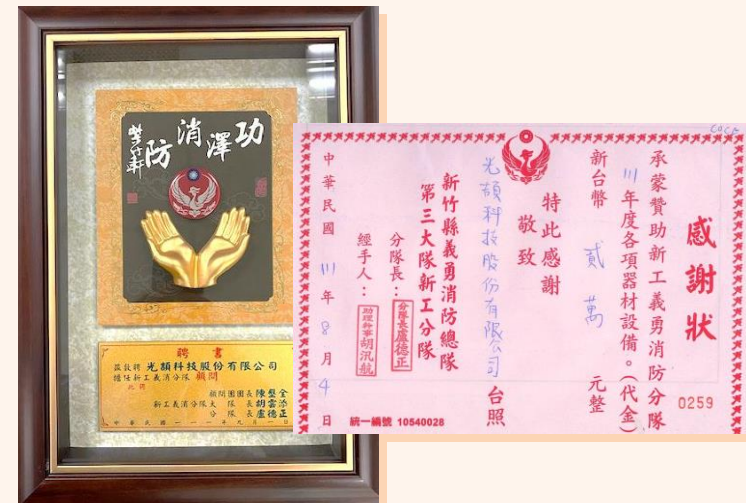 功澤消防
聘書
茲敦聘 光頡科技股份有限公司
擔任新工義消分隊 顧問
此聘
顧問團團長
新工義消分隊大隊長胡雲添
分隊長盧德正
中華民國一一一年九月一日
感謝狀
0259
承蒙贊助新工義勇消防分隊
111年度各項器材設備。(代金)
新台幣 貳萬 元整
特此感謝
敬致
光頡科技股份有限公司 台照
新竹縣義勇消防總隊
第三大隊新工分隊
分隊長:分隊長盧德正
經手人:助理幹事胡汎航
中華民國 111 年 8 月 4 日
統一編號 10540028